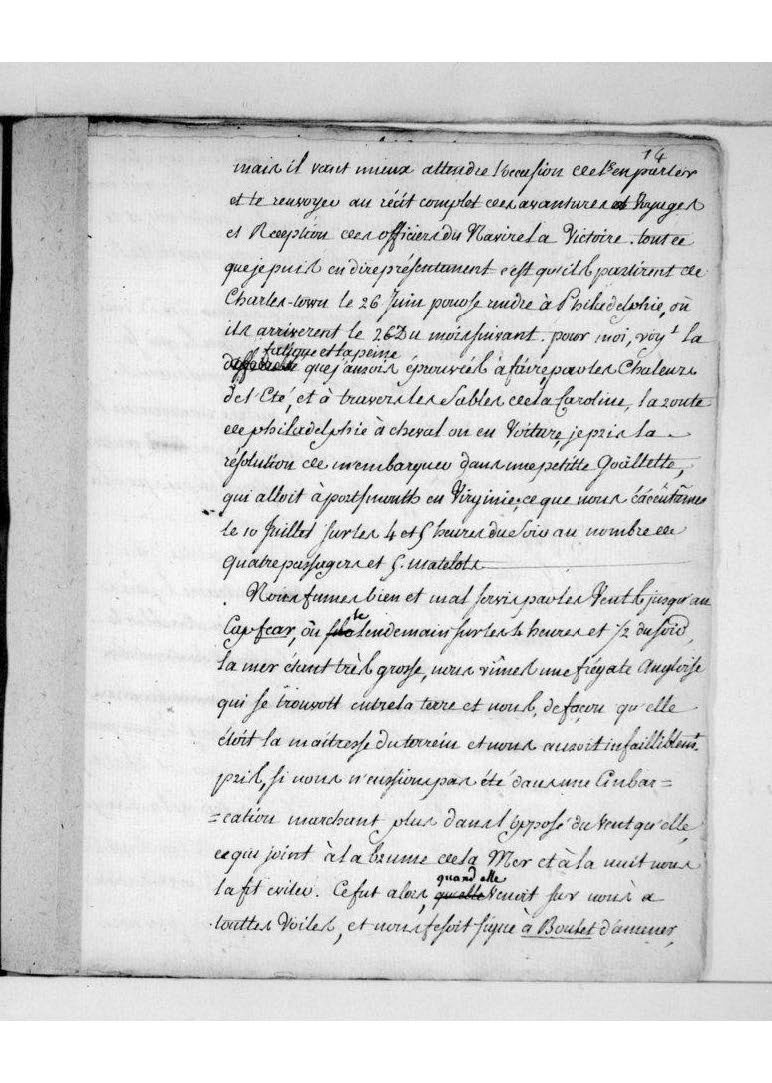 14
mais il vaut mieux attendre l'occasion de l'en parler
et te renvoyer au récit complet des avantures et Voyages
et Réception des officiers du Navire la Victoire. tout ce
que je puis en dire présentement c'est qu'ils partirent de
Charles-town le 26 Juin pour se rendre à Philadelphie, où
ils arriverent le 26 Du mois suivant. pour moi, voyt. la
fatigue et la peine
que j'aurois éprouvéé à faire, par les Chaleurs
de l'Eté, et à travers les Sables de la Caroline, la route
de philadelphie à cheval ou en Voiture, je pris la
résolution de m'embarquer dans une petitte Goëllette,
qui alloit à portsmouth en Virginie; ce que nous éxécutâmes
le 10 Juillet sur les 4 et 5 heures du Soir au nombre de
quatre passagers et 5. matelots
Nous fumes bien et mal servis par les Vents jusqu'au
Cap fear, où le lendemain sur les 4 heures et 1/2 du soir,
la mer étant très grosse, nous vîmes une frégate Angloise
qui se trouvoit entre la terre et nous, de façon qu'elle
étoit la maîtresse du terrein et nous auroit infailliblemt.
pris, si nous n'eussions pas été dans une Embar=
=cation marchant plus dans l'opposé du Vent qu'elle,
ce qui joint à la brume de la Mer et à la nuit nous
quand elle
la fit éviter. Ce fut alors, qu'elle venoit sur nous à
touttes Voiles, et nous fesoit signe à Boulet d'amener,